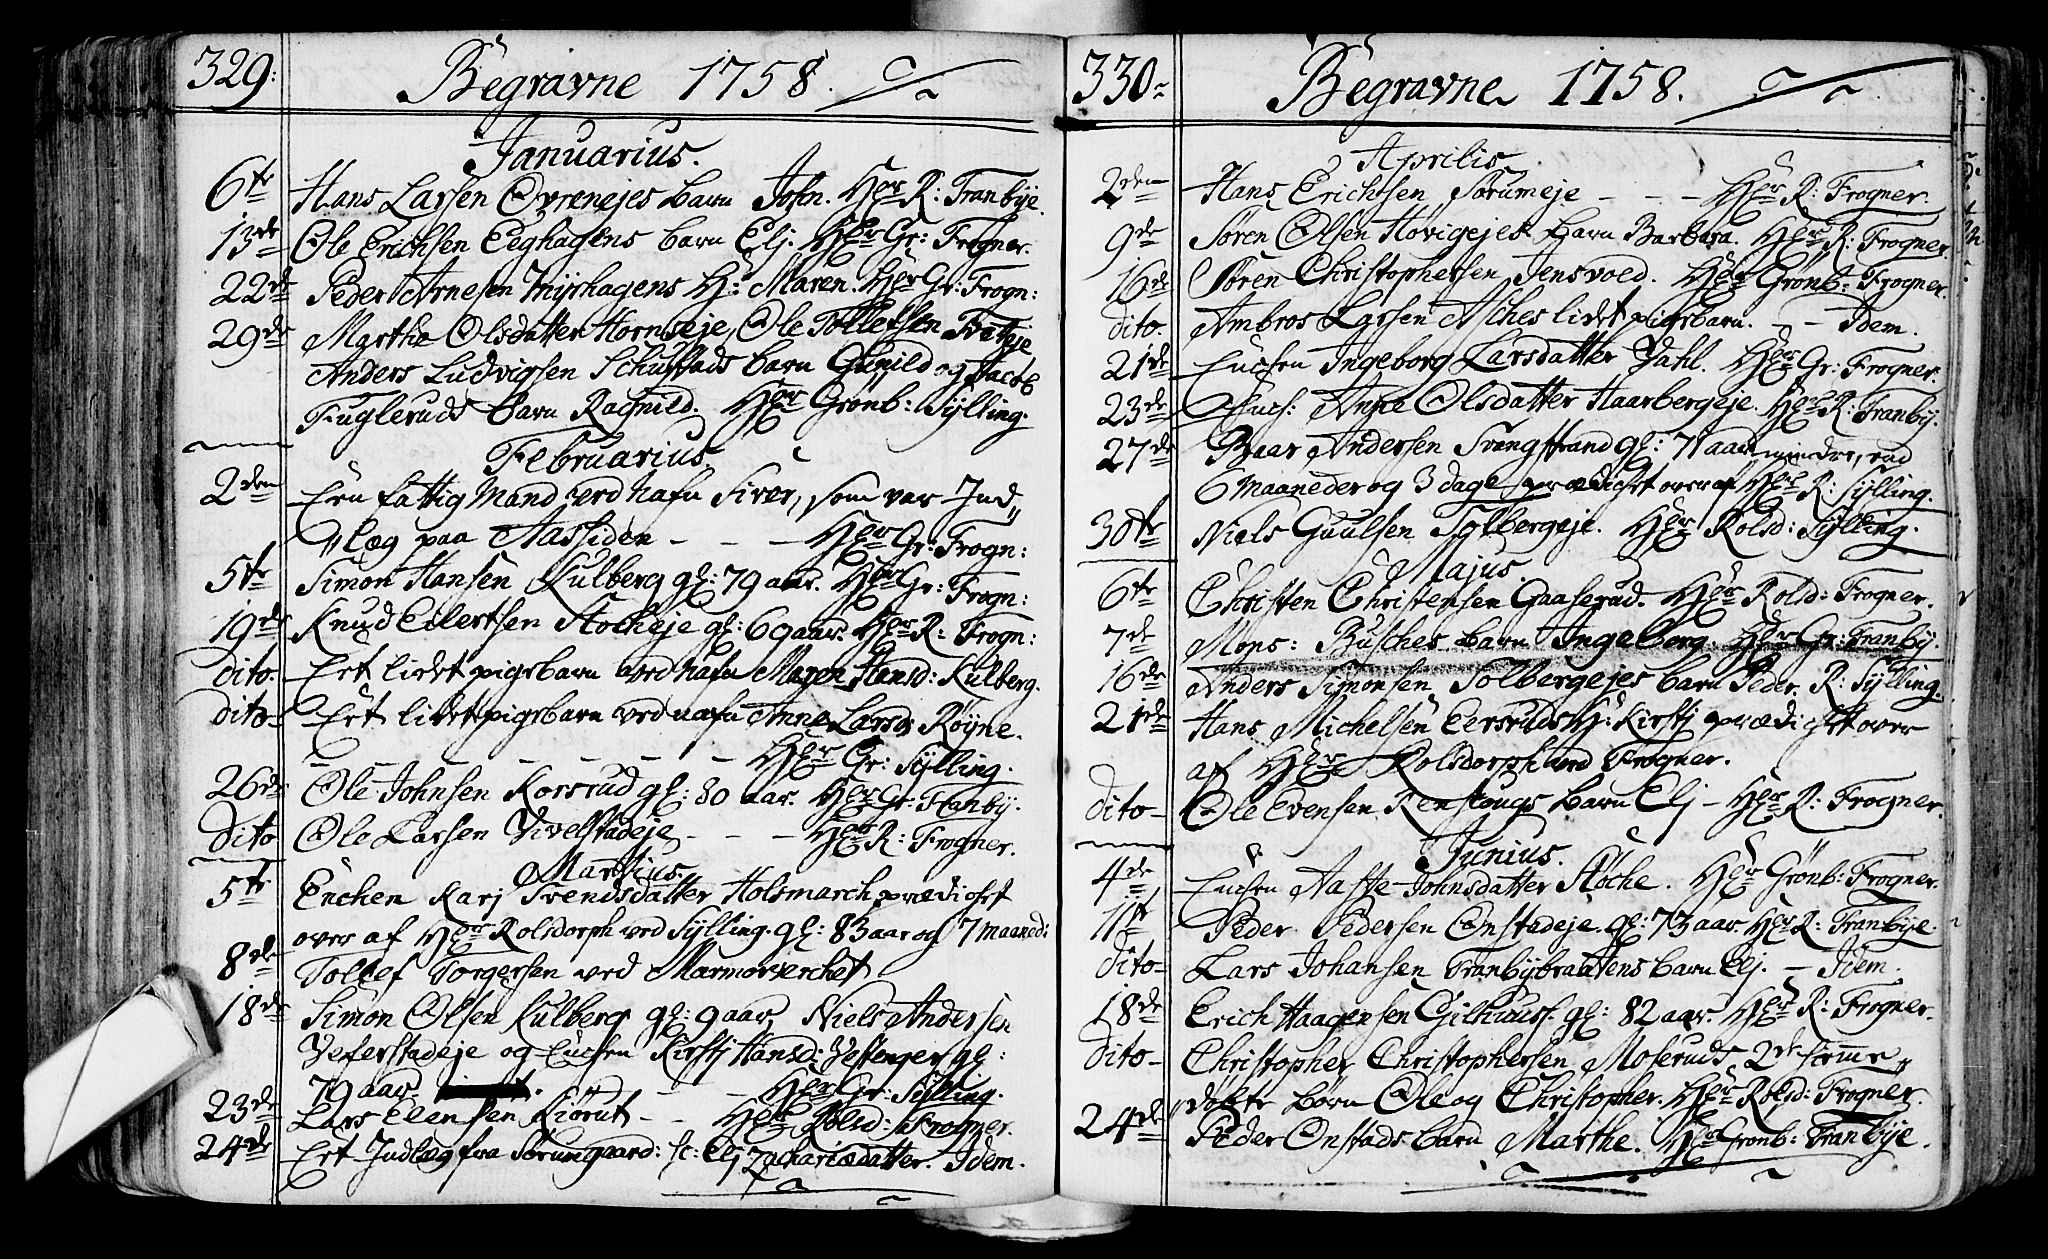 329:
Begravne 1758.
Januarius.
6te Hans Larsen Øvreneies barn John. Hr R: Tranbÿe.
13de Ole Erichsen Eeghagens barn Elj. Hr Gr: Frogner.
22de Peder Arnesen Myrhagens H: Maren. Hr Gr: Frogn:
29de Marthe Olsdatter Hornseje, Ole Tollefsen
Anders Ludvigsen barn Gunild og Jacob
Fugleruds barn Ragnild. Hr Grönb: Sylling.
Februarius
2den Een fattig Mand ved nafn Siver, som var Ind„
„læg paa Aassiden - - - Hr Gr: Frogn:
5te Simon Hansen Kulberg gl: 79 aar. Hr Gr: Frogn:
19de Knud Eilertsen Stocheje gl: 69 aar. Hr R: Frogn:
dito. Eet lidet pigebarn ved nafn Maren Hansd: Kulberg.
dito- Eet lidet pigebarn ved nafn Anne Larsd: Røyne.
- - - - - - Hr Gr: Sylling.
26de Ole Johnsen Korsrud gl: 80 aar. Hr Gr: Tranby.
dito Ole Larsen Vivelstadeje - - - Hr R: Frogner.
Martius.
5te Enchen Karj Svendsdatter Holsmarch, prædichet
over af Hr Rolsdorph ved Sylling. gl: 83 aar og 7 maaned:
8de Tollef Torgersen ved Marmorverchet
18de Simon Olsen Kulberg gl: 9 aar, Niels Andersen
Veferstadeje og Enchen Kirstj Hansd: gl:
79 aar. - - - Hr Gr: Sylling.
23de Lars Ellensen - - Hr Rolsd: Frogner.
24de Eet Indlæg fra Sörumgaard: sc: Elj Zachariædatter. Idem.
330-
Begravne 1758.
Aprilis
2den Hans Erichsen Sörumeje - - - Hr R: Frogner.
9de Sören Olsen Høvigejes barn Barbara. Hr R: Frogner.
16de Sören Christophersen Jensvold. Hr Grönb: Frogner.
dito. Ambros Larsen Asches lidet pigebarn. - - Idem.
21de Enchen Ingeborg Larsdatter Dahl. Hr Gr: Frogner.
23de Ench: Anne Olsdatter Haarbergeje. Hr R: Tranby.
27de Baar Andersen Svangstrand gl: 71 aar, mindre, end
6 Maaneder og 3 dage prædichet over af Hr R: Sylling.
30te Niels Guulsen Tolbergeje. Hr Rolsd: Sylling.
Majus
6te Christen Christensen Gaaserud. Hr Rolsd: Frogner.
7de Mons: Busches barn Ingeborg. Hr Gr: Tranby.
16de Anders Simonsen Tolbergejes barn Peder. R: Sylling.
21de Hans Michelsen Eersruds H: Kirstj prædichet over
af Hr Rolsdorph ved Frogner.
dito- Ole Evensen Renskougs barn Elj - Hr R: Frogner.
Junius.
4de Enchen Aaste Johnsdatter Støche. Hr Grönb: Frogner.
11te Peder Pedersen Onstadeje. gl: 73 aar. Hr R: Tranbÿe.
dito- Lars Johansen Tranbybraatens barn Elj. - Idem.
18de Erich Haagensen Gilhuus. gl: 82 aar. Hr R: Frogner.
dito- Christopher Christophersen Moseruds 2de hieme„
„döbte børn Ole og Christopher. Hr Rolsd: Frogner.
24de Peder Onstads barn Marthe. Hr Grönb: Tranbÿe.